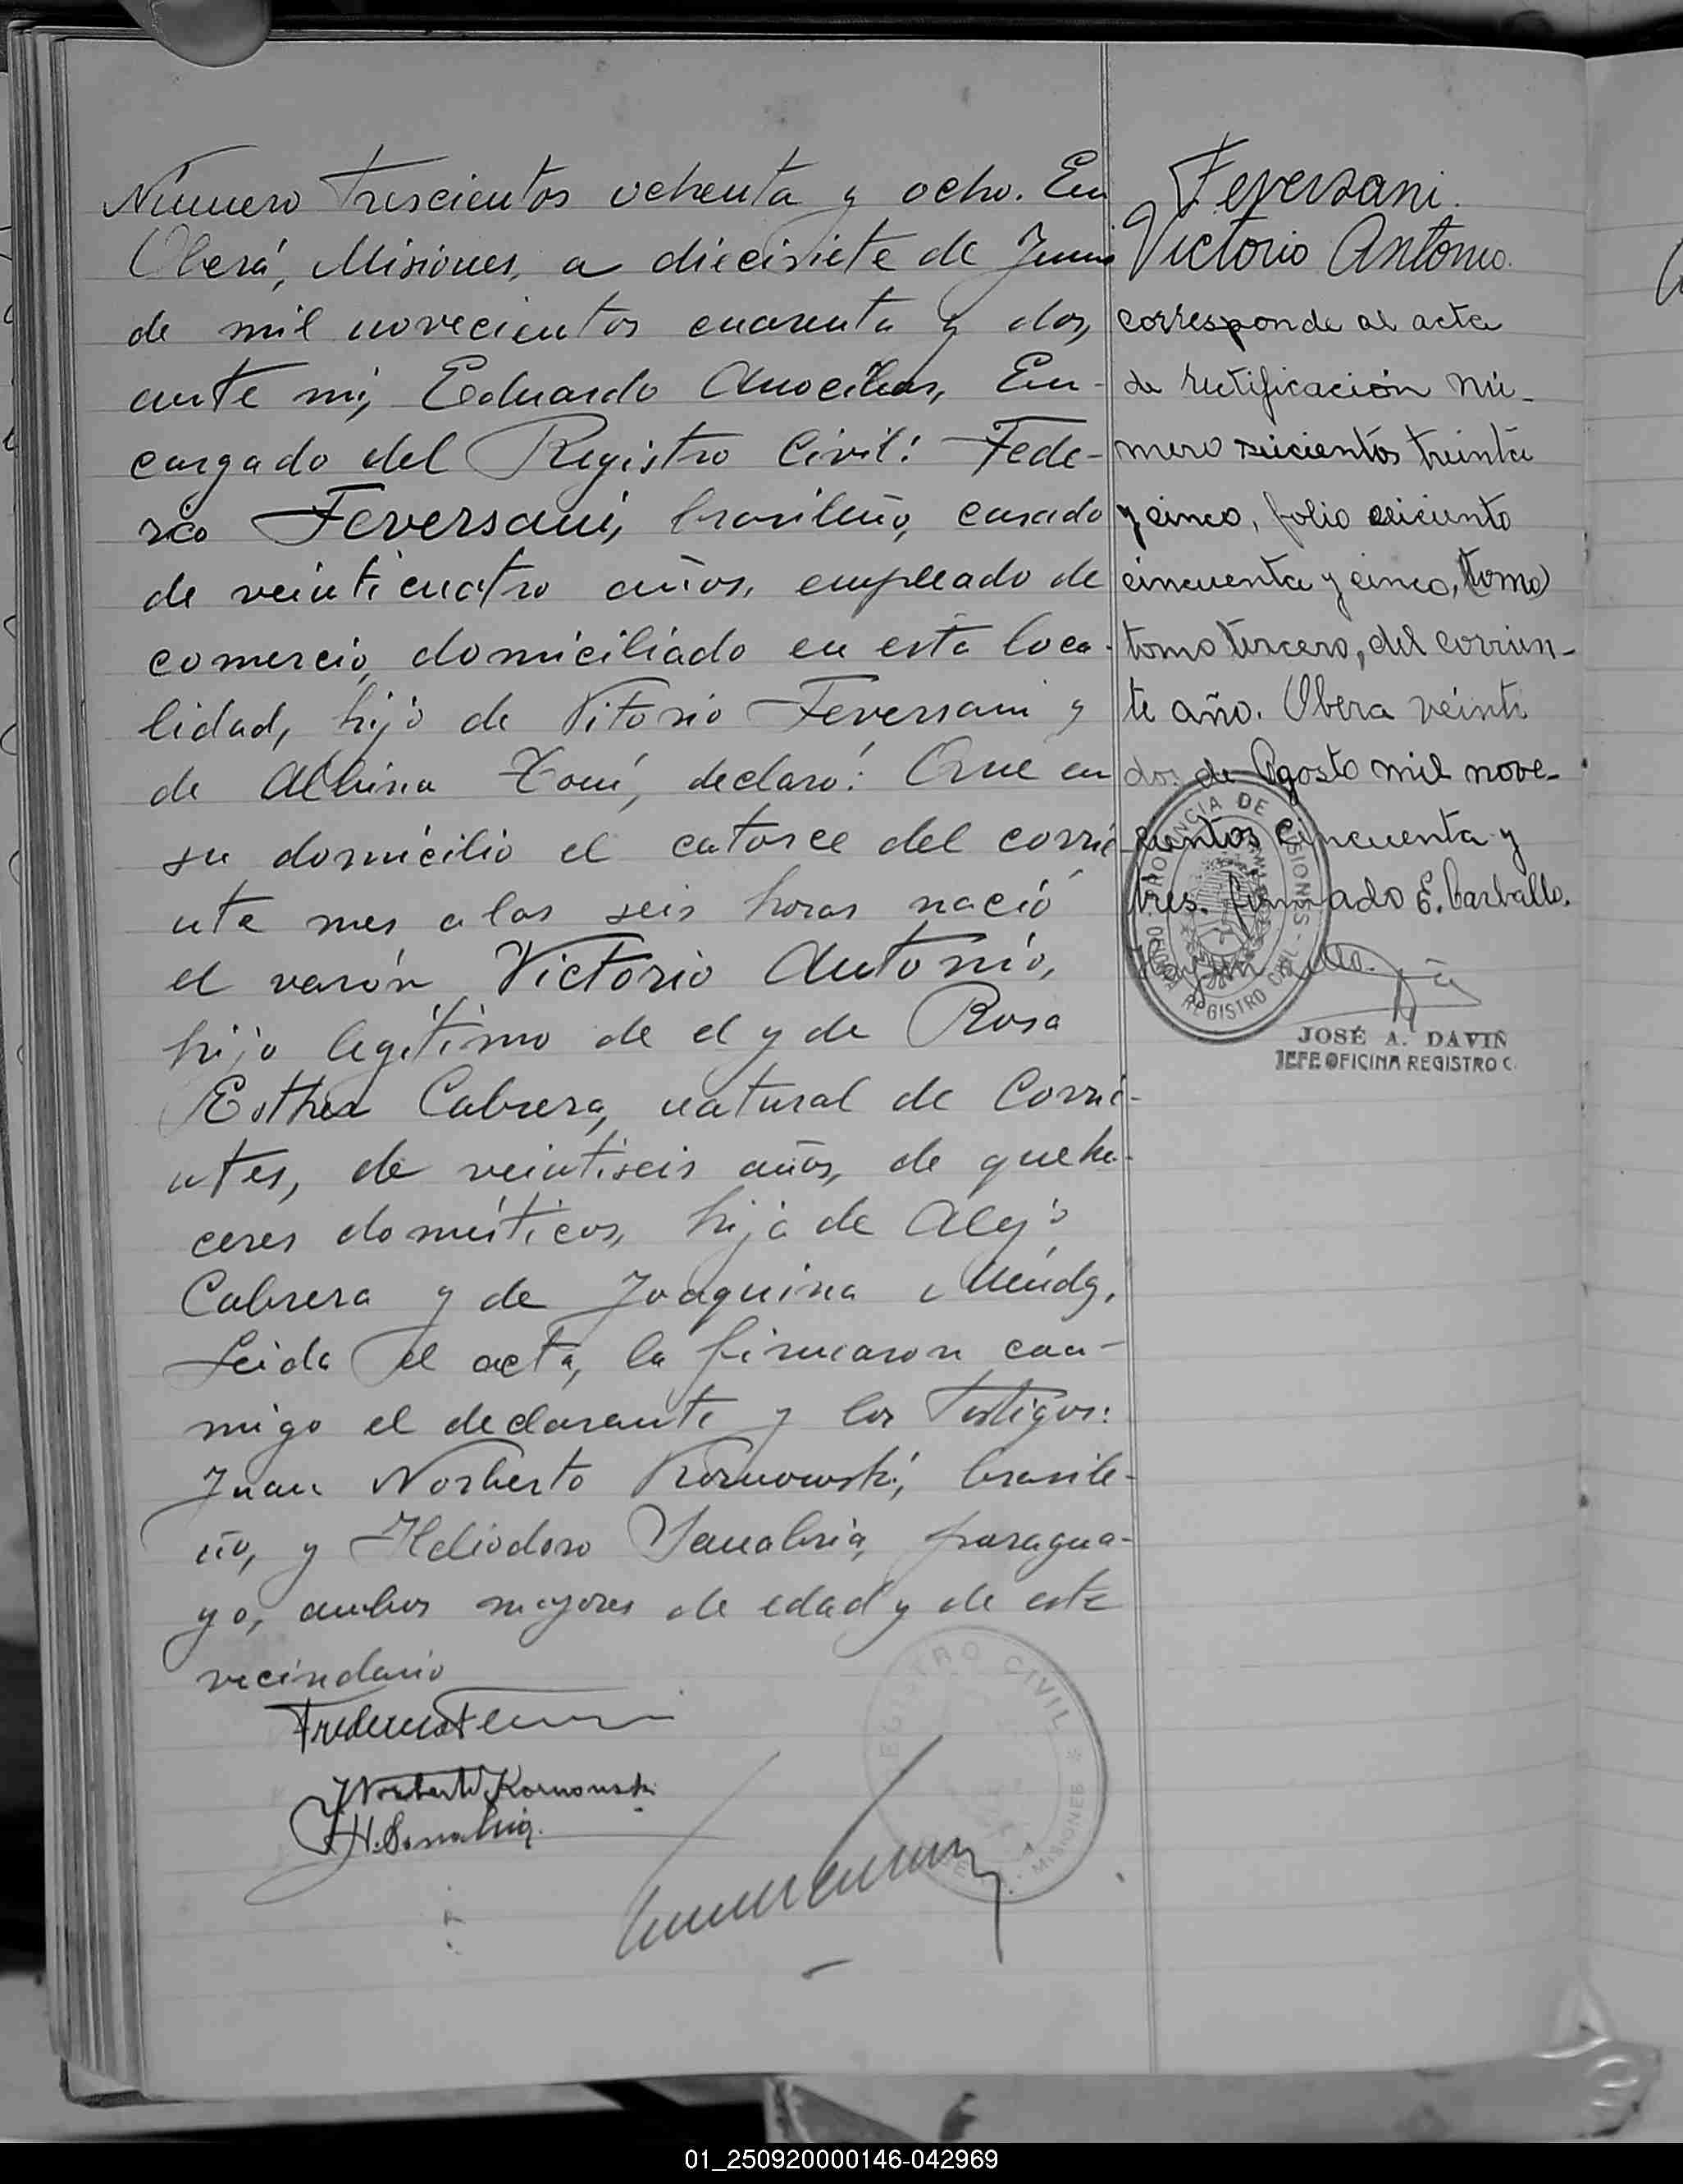 Número trescientos ochenta y ocho. En
Oberá, Misiones, a diecisiete de Junio
de mil novecientos cuarenta y dos,
ante mi, Eduardo En-
cargado del Registro Civil: Fede-
rico Feversani, brasileño, casado
de veinticuatro años, empleado de
comercio, domiciliado en esta loca-
lidad, hijo de Vitorio Feversani y
de Albina declaró: Que en
su domicilio el catorce del corrie-
nte mes a las seis horas nació
el varón Victorio Antonio,
hijo legítimo de el y de Rosa
Esther Cabrera, natural de Corrie-
ntes, de veintiseis años, de queha-
ceres domésticos, hija de Alejo
Cabrera y de Joaquina
Leida el acta, la firmaron con-
migo el declarante y los testigos:
Juan Norberto Kornowski, brasile-
ño, y Heliodoro Sanabria, paragua-
yo, ambos mayores de edad y de este
vecindario
J. Norberto Kornowski
H. Sanabria
REGISTRO CIVIL * MISIONES
Feversani.
Victorio Antonio.
corresponde al acta
de rectificación nú-
mero seicientos treinta
y cinco, folio seiciento
cincuenta y cinco, (tomo)
tomo tercero, del corrien-
te año. Obera veinti
dos de Agosto mil nove-
cientos cincuenta y
tres. firmado E. Carballo.
PROVINCIA DE MISIONES - REGISTRO CIVIL
JOSÉ A. DAVIÑ
JEFE OFICINA REGISTRO C.
01_250920000146-042969